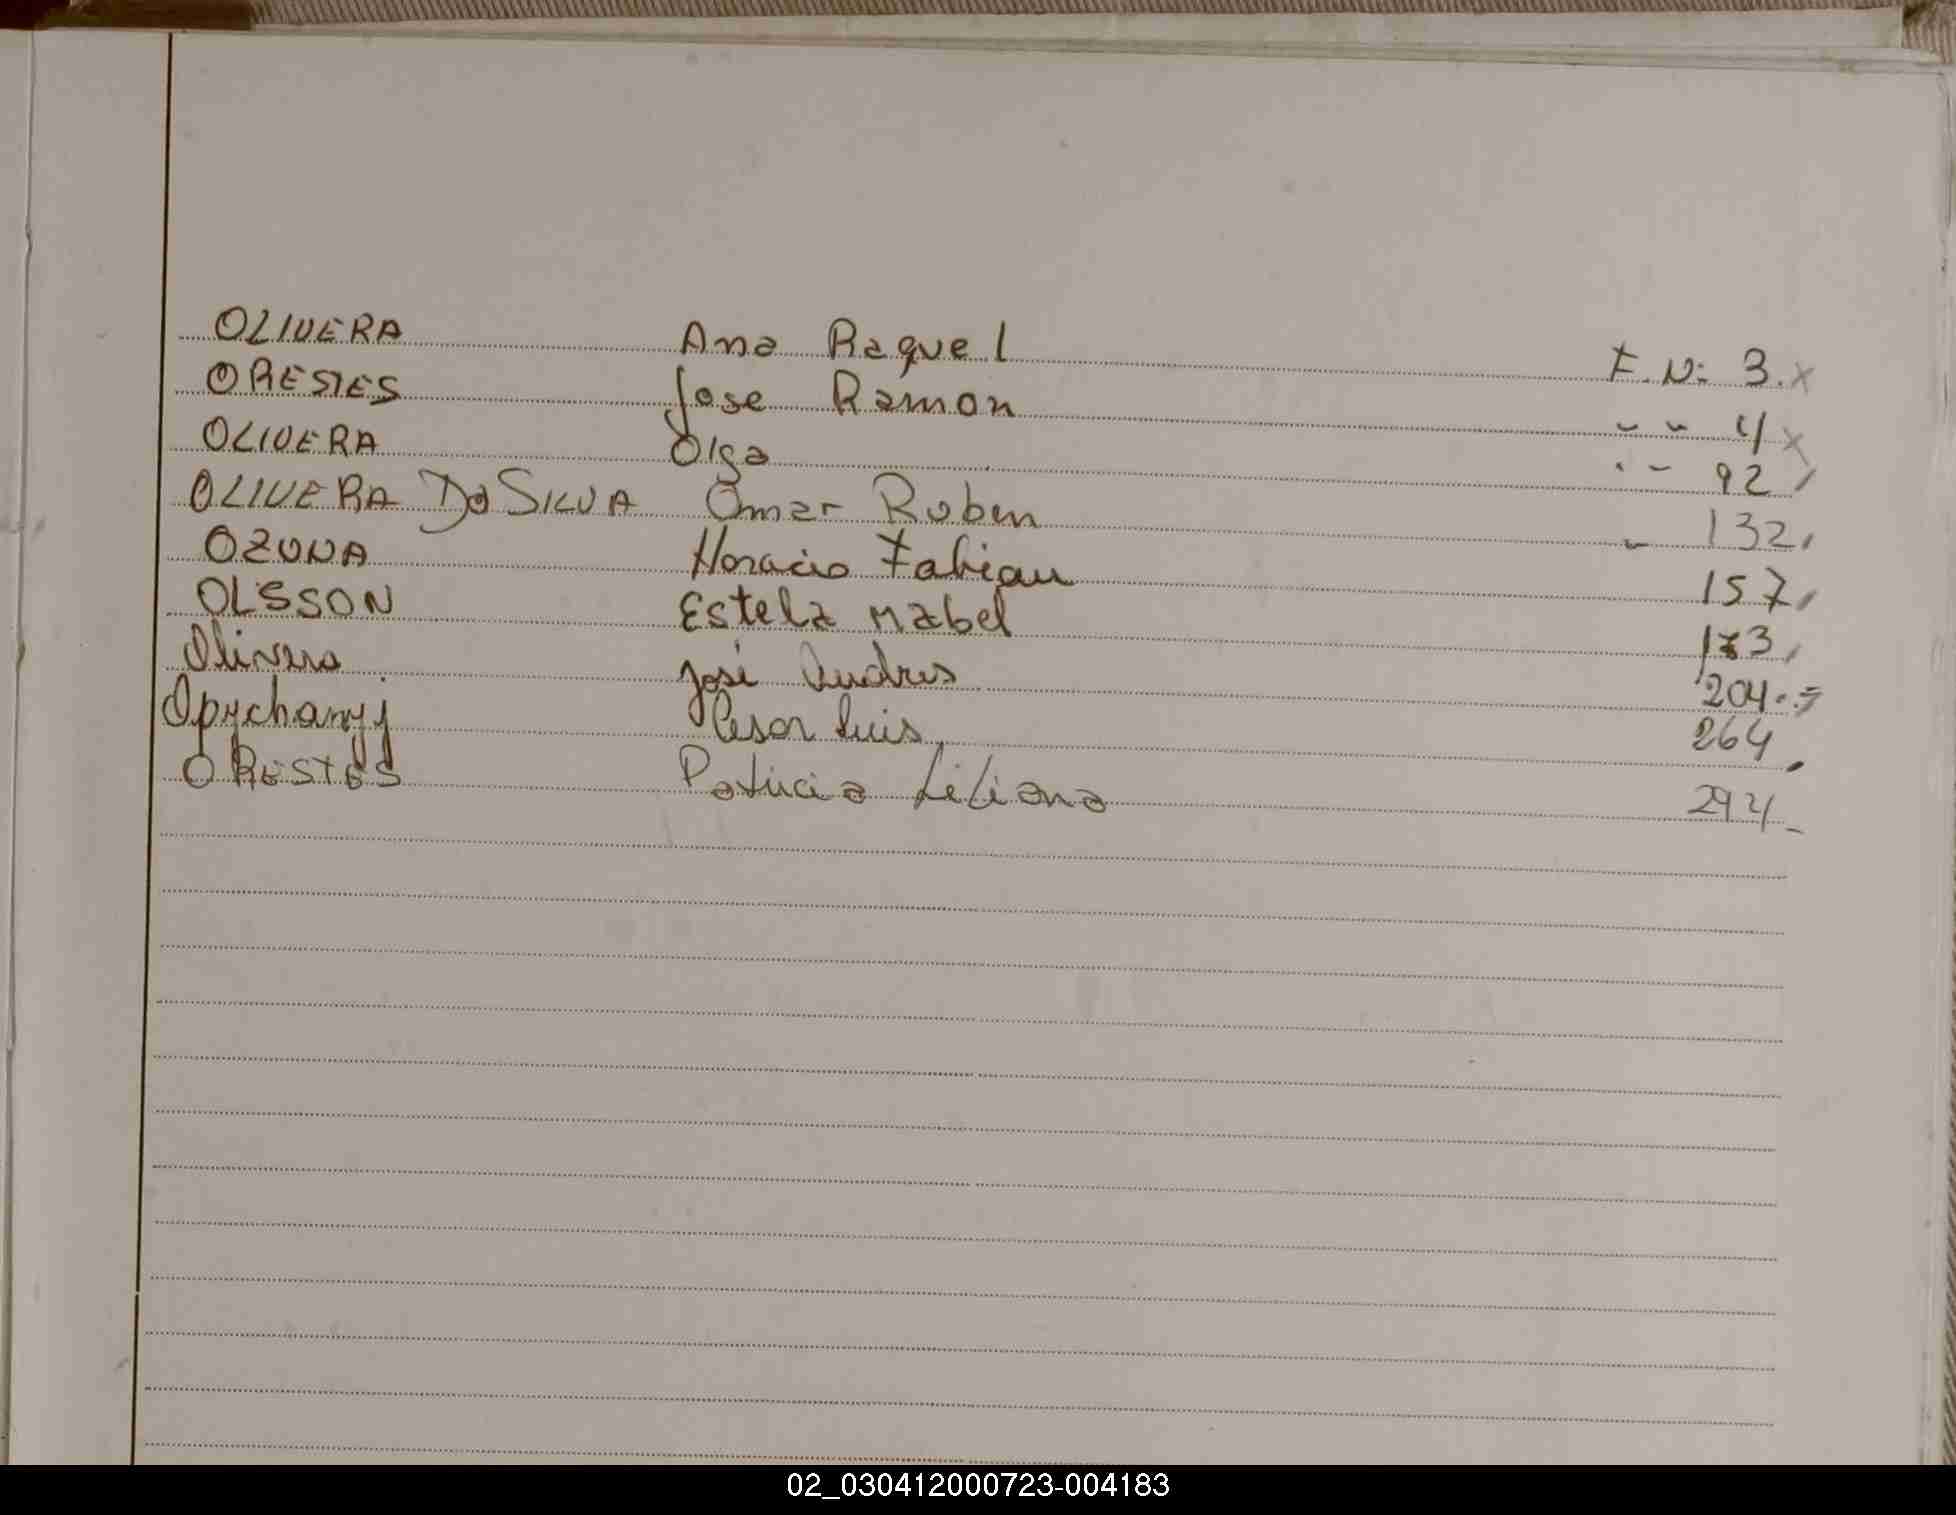 OLIVERA Ana Raquel F. N: 3. x
ORESTES Jose Ramon " " 4 x
OLIVERA Olga " " 92
OLIVERA DO SILVA Omar Ruben " 132
OZUNA Horacio Fabian 157
OLSSON Estela Mabel 173
Olivera José Andres 204
Opychanyj Cesar Luis 264
ORESTES Patricia Liliana 294
02_030412000723-004183